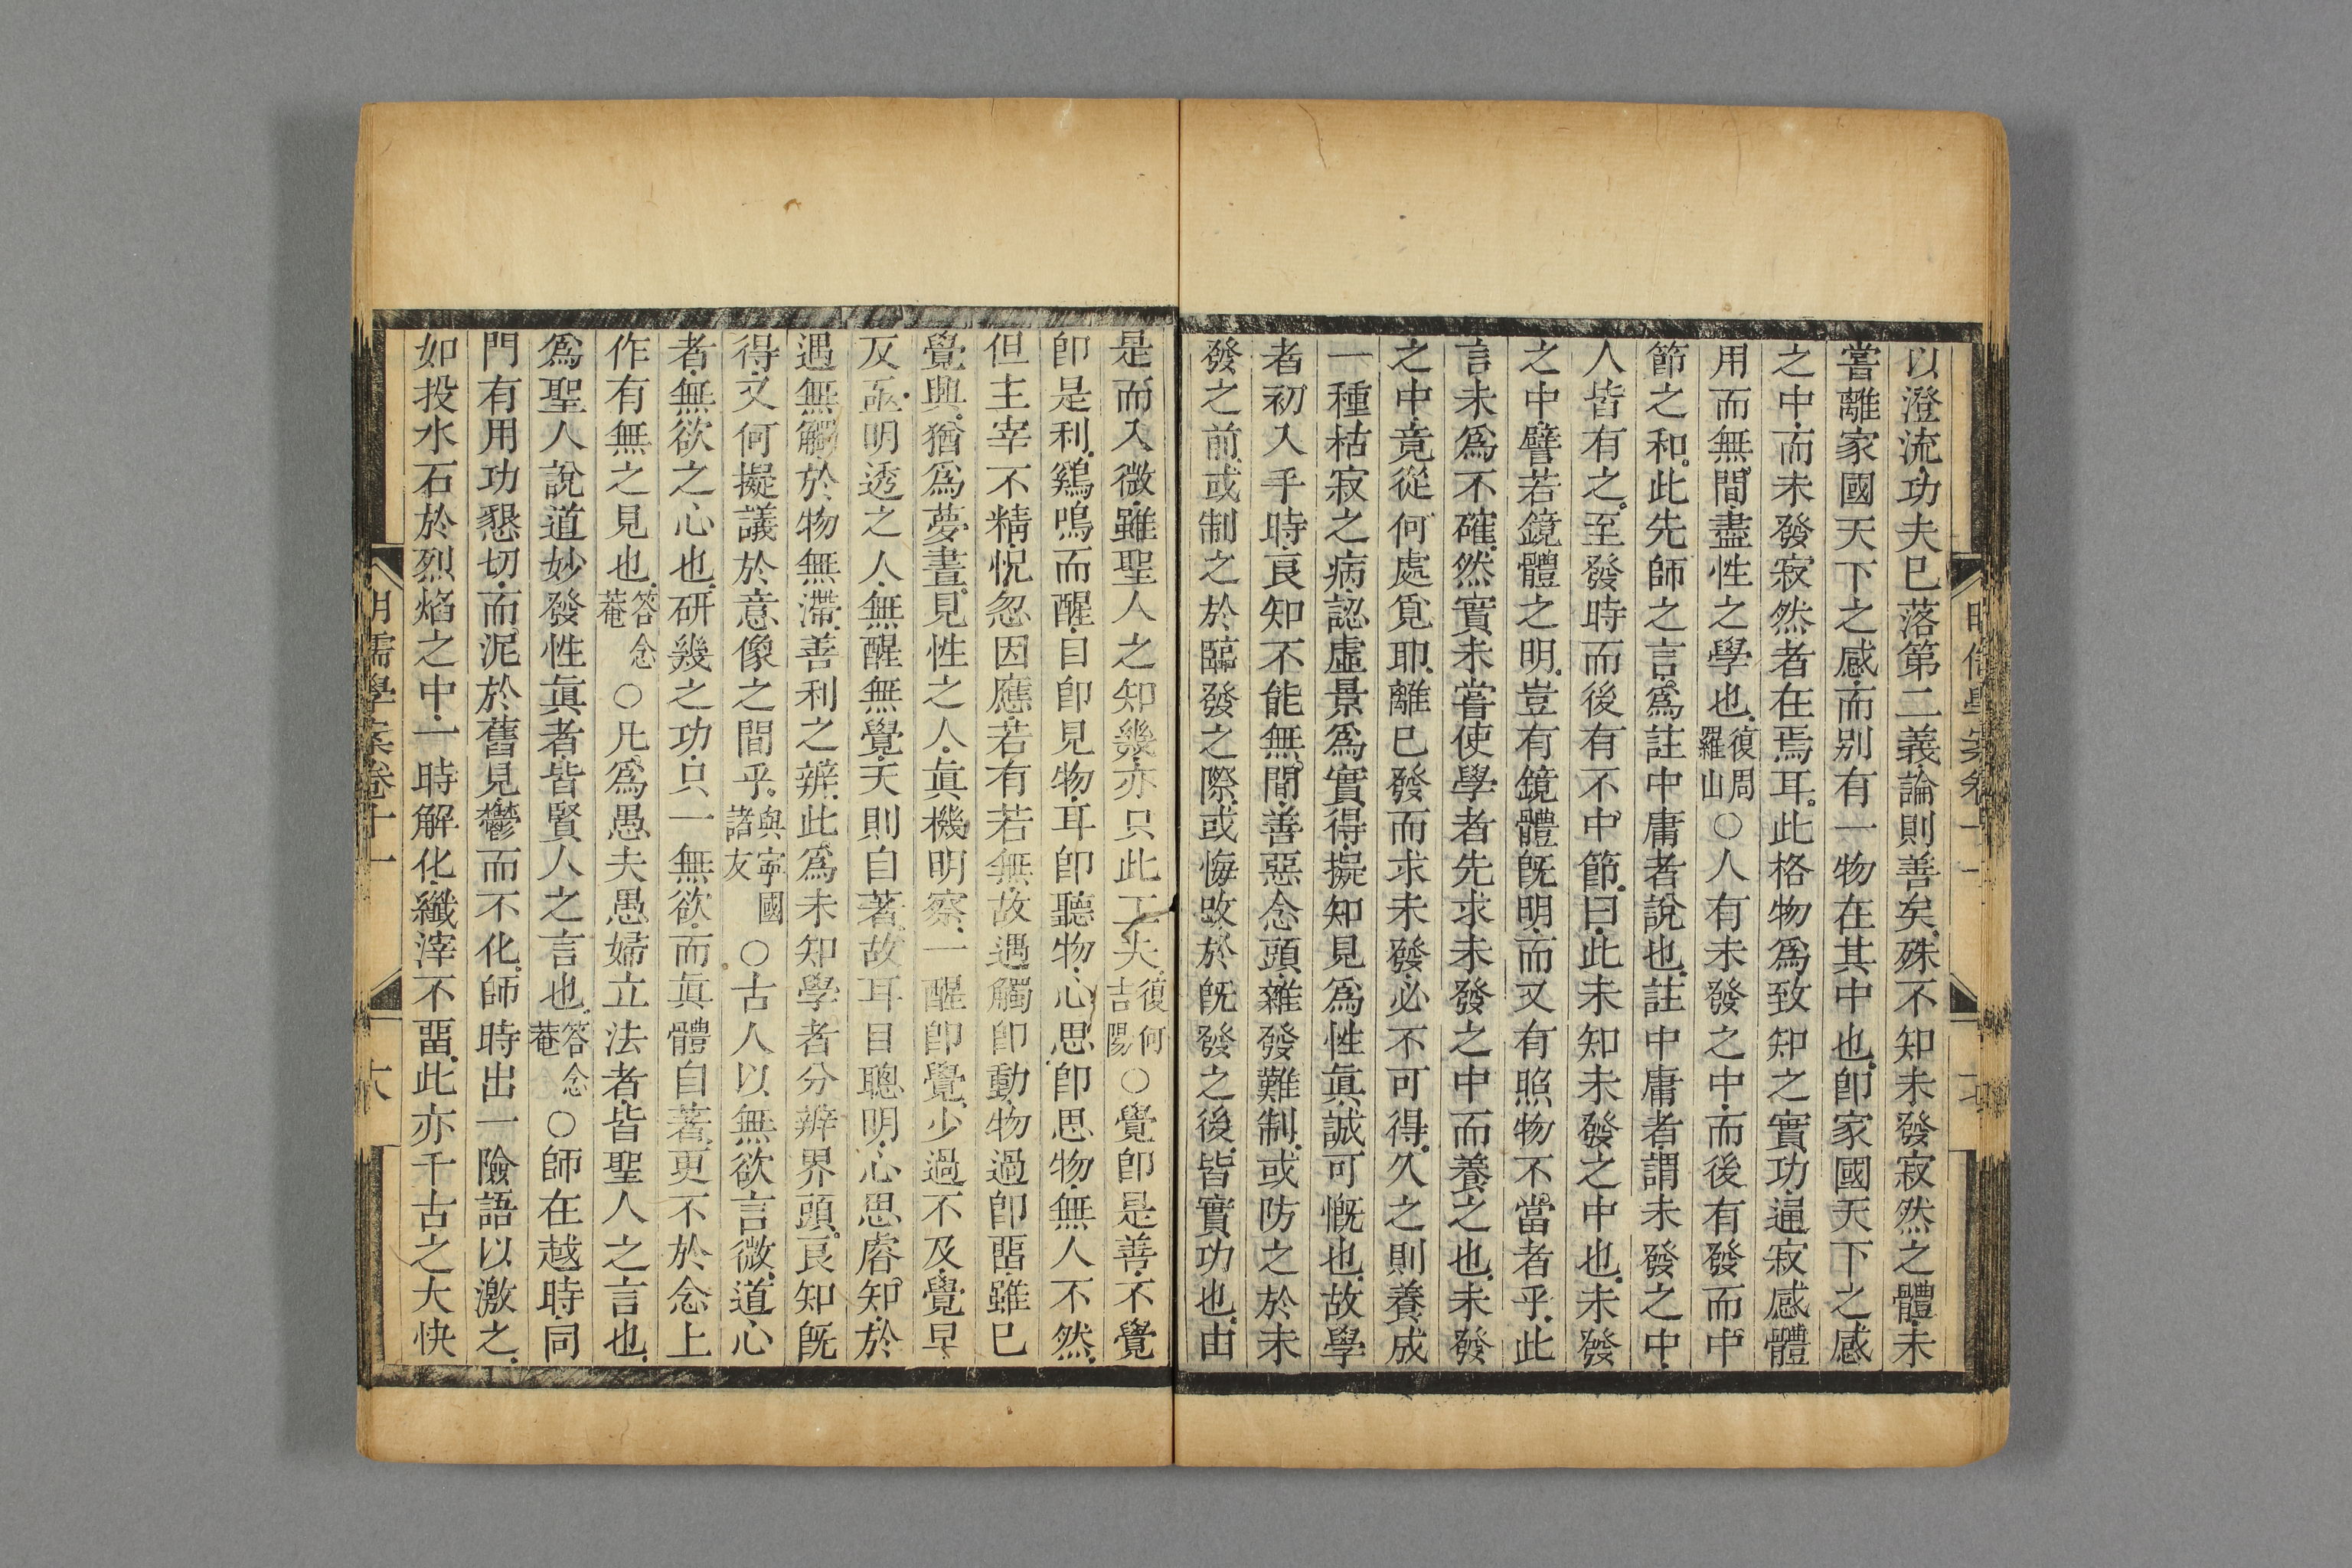 以澄流功夫已落第二義論則善矣殊不知未發寂然之體未
嘗離家國天下之感而别有一物在其中也卽家國天下之感
之中而未發寂然者在焉耳此格物爲致知之實功通寂感體
用而無間盡性之學也復周羅山○人有未發之中而後有發而中
節之和此先師之言爲註中庸者說也註中庸者謂未發之中
人皆有之至發時而後有不中節曰此未知未發之中也未發
之中譬若鏡體之明豈有鏡體旣明而又有照物不當者乎此
言未爲不確然實未嘗使學者先求未發之中而養之也未發
之中竟從何處覓耶離已發而求未發必不可得久之則養成
一種枯寂之病認虛景爲實得擬知見爲性眞誠可慨也故學
者初入手時良知不能無間善惡念頭雜發難制或防之於未
發之前或制之於臨發之際或悔改於旣發之後皆實功也由
是而入微雖聖人之知幾亦只此工夫復何吉陽○覺卽是善不覺
卽是利鷄鳴而醒目卽見物耳卽聽物心思卽思物無人不然
但主宰不精恍忽因應若有若無故遇觸卽動物過卽畱雖已
覺興猶爲夢晝見性之人眞機明察一醒卽覺少過不及覺早
反亟明透之人無醒無覺天則自著故耳目聰明心思睿知於
遇無觸於物無滯善利之辨此爲未知學者分辨界頭良知旣
得又何擬議於意像之間乎與寧國諸友○古人以無欲言微道心
者無欲之心也研幾之功只一無欲而眞體自著更不於念上
作有無之見也答念菴○凡爲愚夫愚婦立法者皆聖人之言也
爲聖人說道妙發性眞者皆賢人之言也答念菴○師在越時同
門有用功懇切而泥於舊見鬱而不化師時出一險語以激之
如投水石於烈焰之中一時解化纖滓不畱此亦千古之大快
明儒學案卷十一